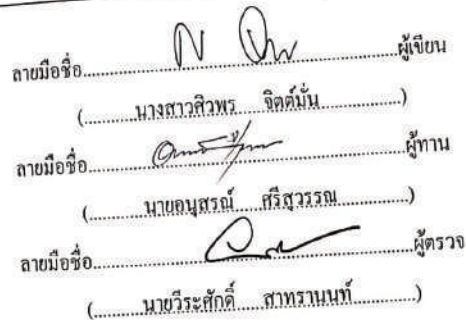 ลายมือชื่อ..............................ผู้เขียน
(..........นางสาวศิวพร จิตต์มั่น..........)
ลายมือชื่อ..............................ผู้ทาน
(..........นายอนุสรณ์ ศรีสุวรรณ..........)
ลายมือชื่อ..............................ผู้ตรวจ
(..........นายวีระศักดิ์ สาทรานนท์..........)